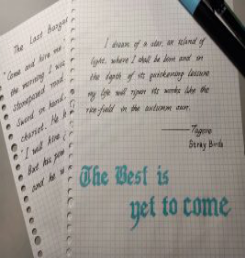 The Last Bargain
"Come and hire me
the morning I was
Stonepaved road.
Sword in hand,
chariot. He h
"I will hire
But his pow
and he w
I dream of a star, an island of
light, where I shall be born and in
the depth of its quickening leisure
my life will ripen its works like the
rice-field in the autumn sun.
——Tagore
Stray Birds
The Best is
yet to come